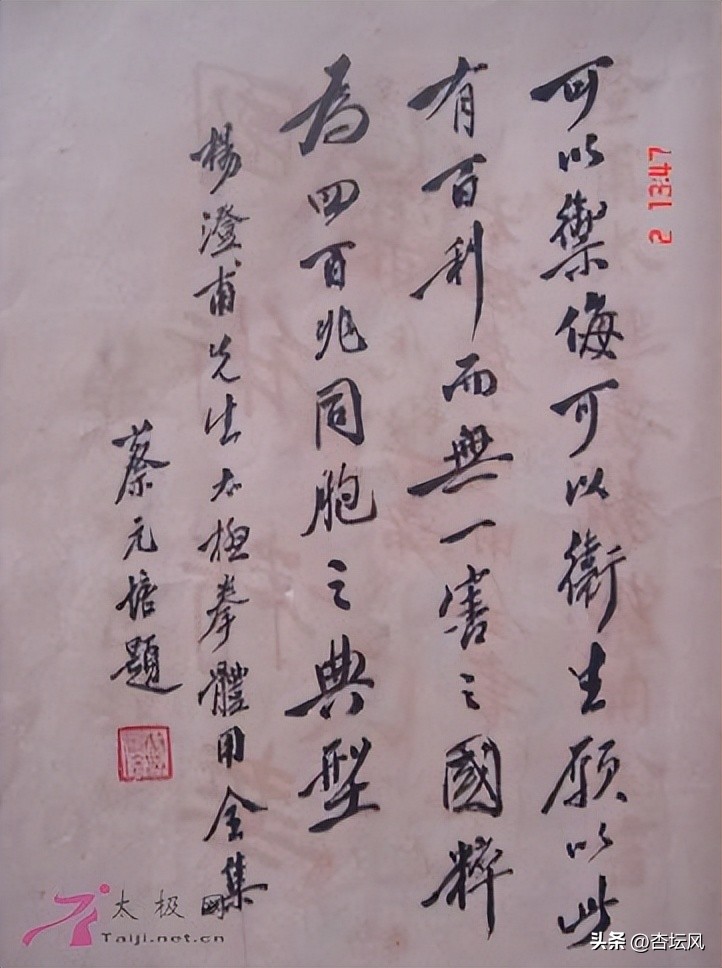 可以禦侮可以衛生願以此
有百利而無一害之國粹
為四百兆同胞之典型
楊澄甫先生太極拳體用全集
蔡元培題
2 13:47
太极网
Taiji.net.cn
头条 @杏坛风